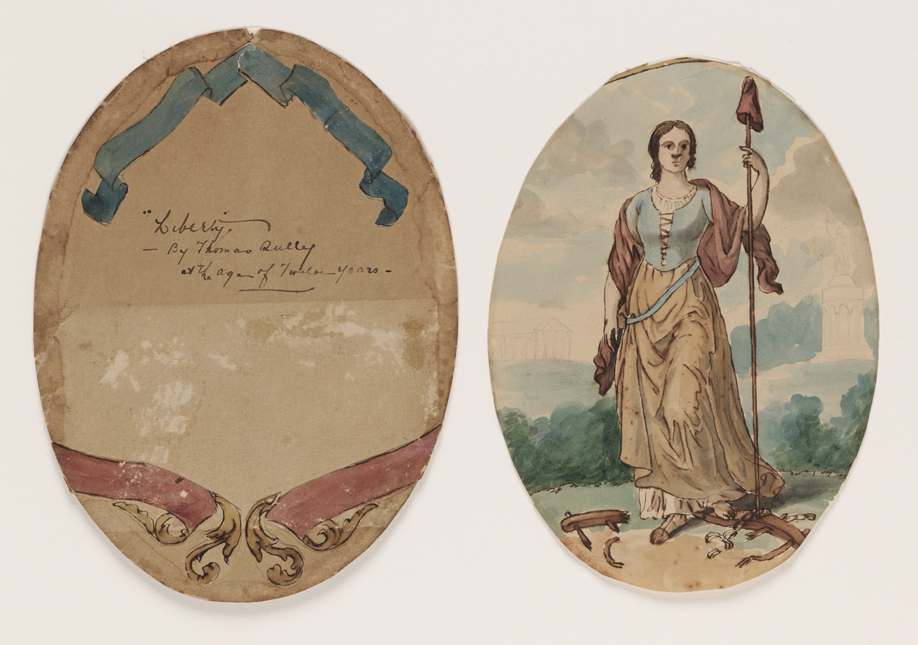 "Liberty"
— By Thomas Sully
at the age of Twelve years —